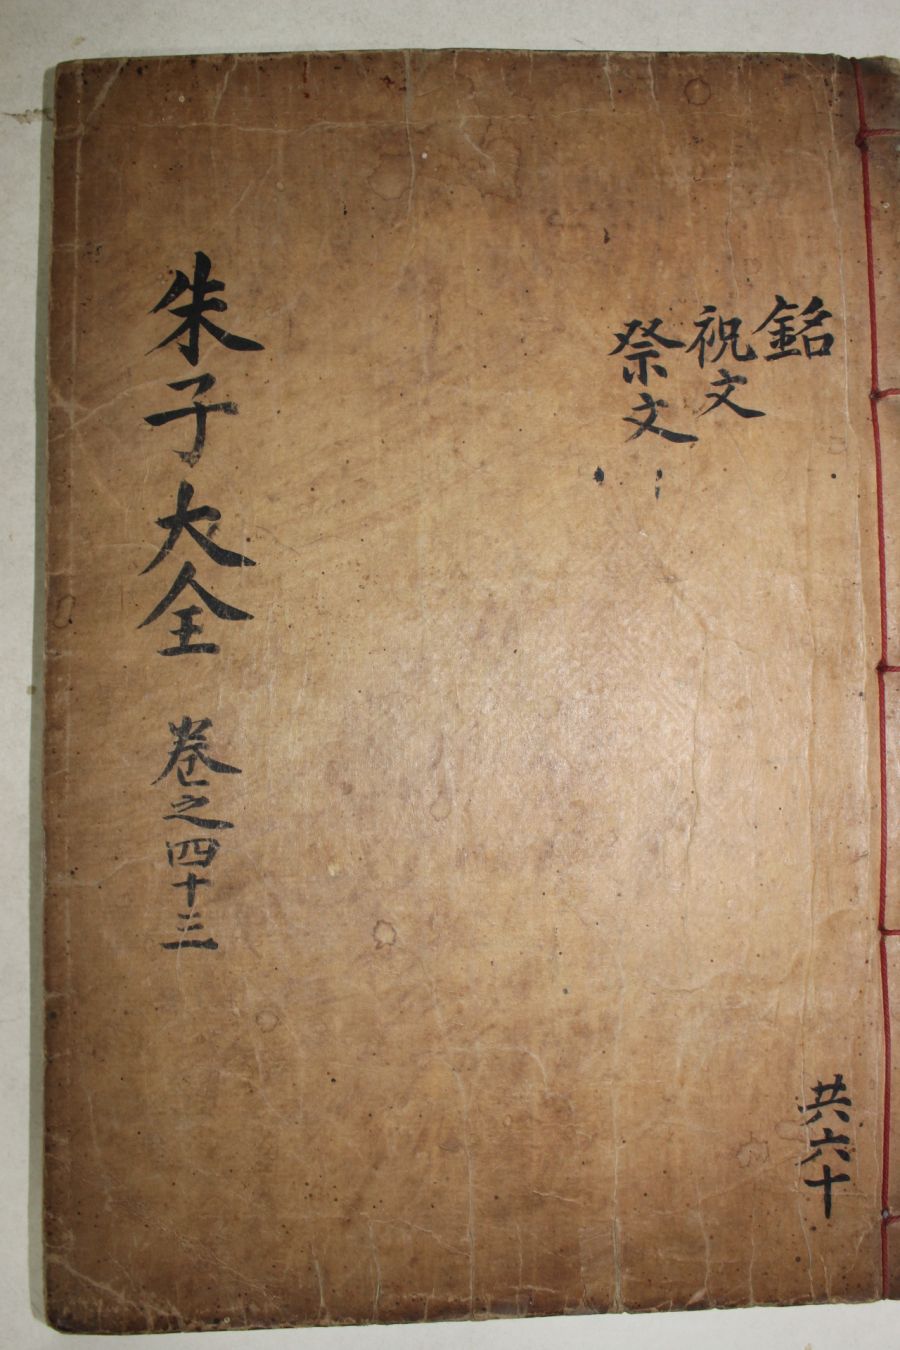 銘
祝文
祭文
朱子大全 卷之四十三
共六十